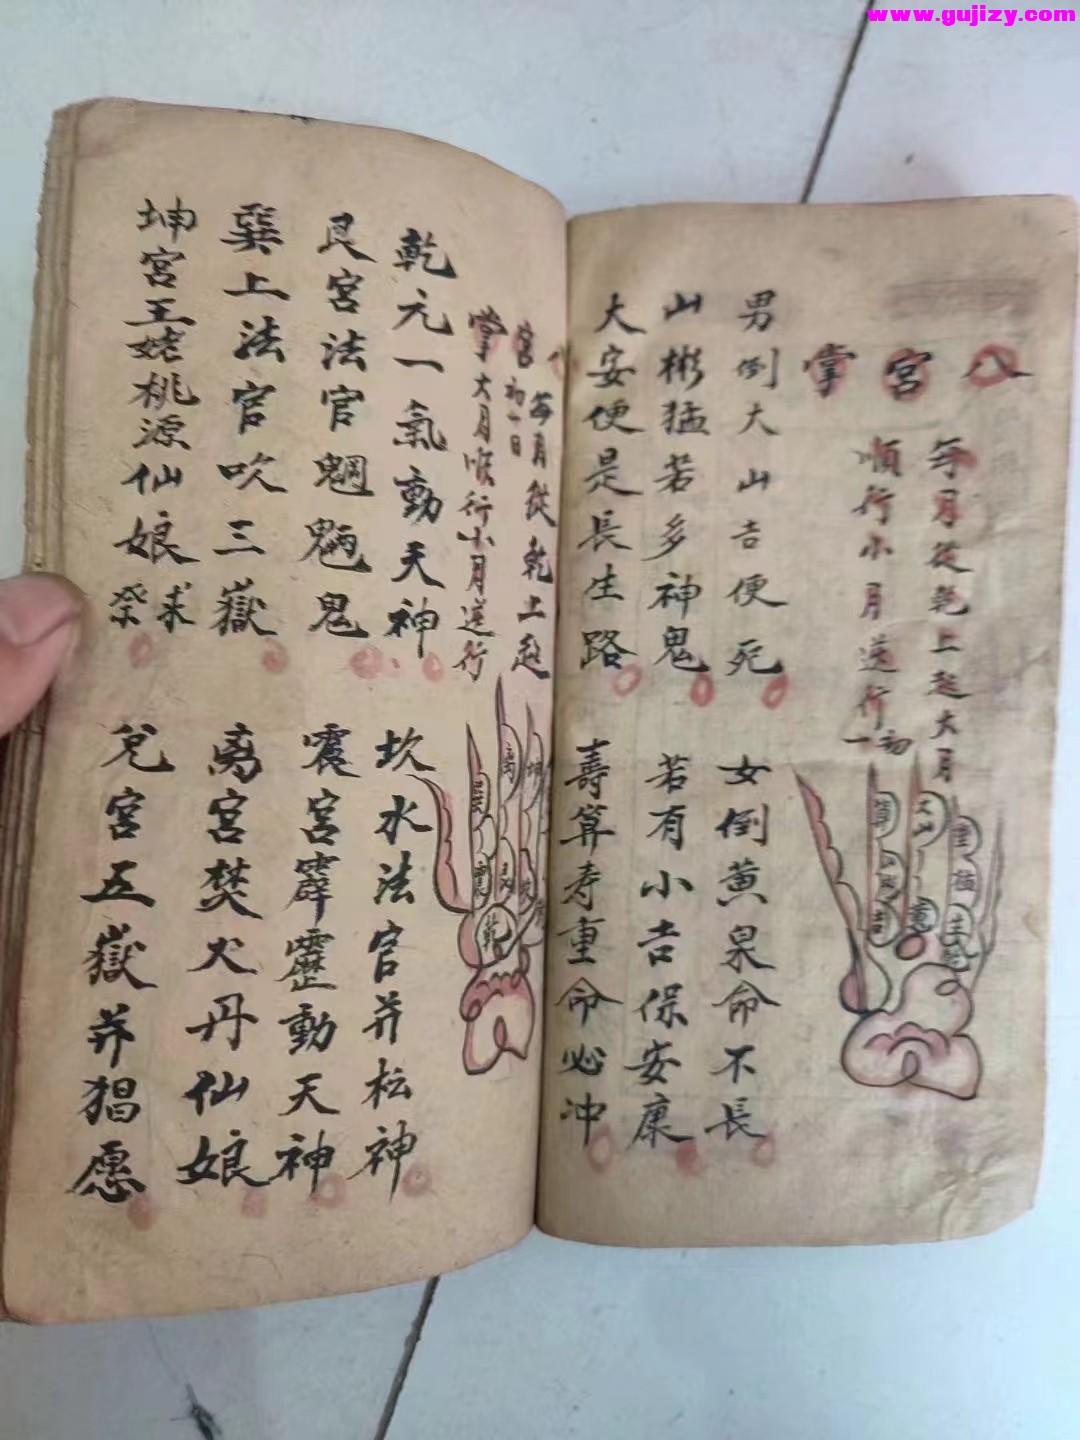 www.gujizy.com
八宮掌
每月從乾上起大月
順行小月逆行
初一
男倒大山吉便死
女倒黄泉命不長
山彬猛若多神鬼
若有小吉保安康
大安便是長生路
壽算寿重命必冲
八宮掌
每月從乾上起
初一日
大月順行小月逆行
乾元一氣動天神
坎水法官并松神
艮宮法官魍魎鬼
震宮霹靂動天神
巽上法官吹三嶽
离宮焚火丹仙娘
坤宮王姥桃源仙娘
祭求
兌宮五嶽并猖愿
离
坤
乾